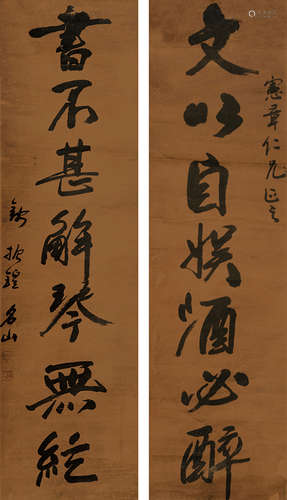 憲章仁兄正之
文以自娛酒必醉
書不甚解琴無絃
錢振鍠名山